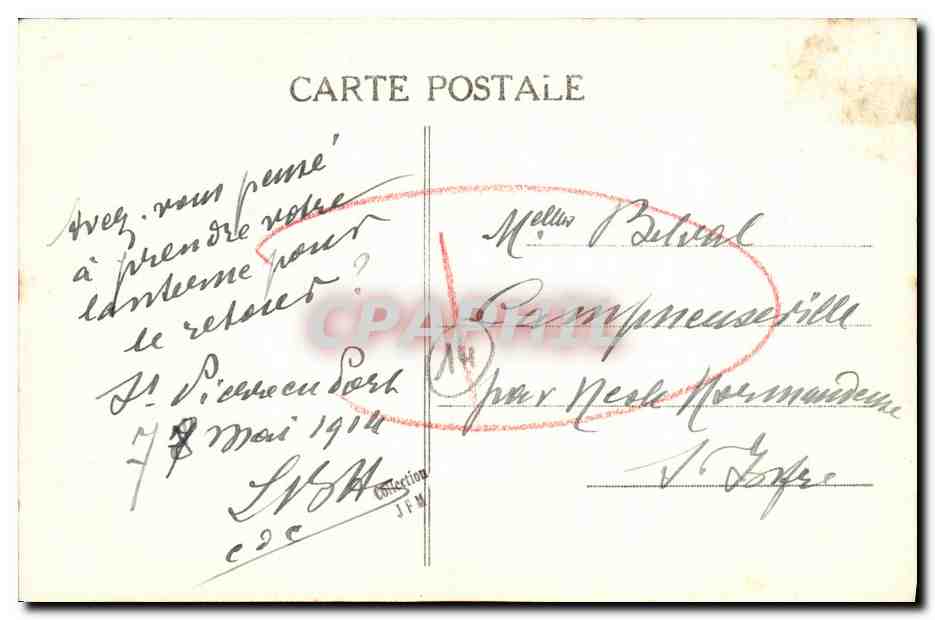 CARTE POSTALE
Avez-vous pensé
à prendre votre
lanterne pour
le retour ?
St Pierre en Port
7 Mai 1914
cdc
Melles Belval
Campneuseville
par Nesle Normandeuse
S. Infre
14
Collection
JFM
CPARPHIL